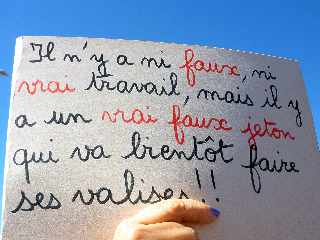 Il n'y a ni faux, ni
vrai travail, mais il y
a un vrai faux jeton
qui va bientôt faire
ses valises!!